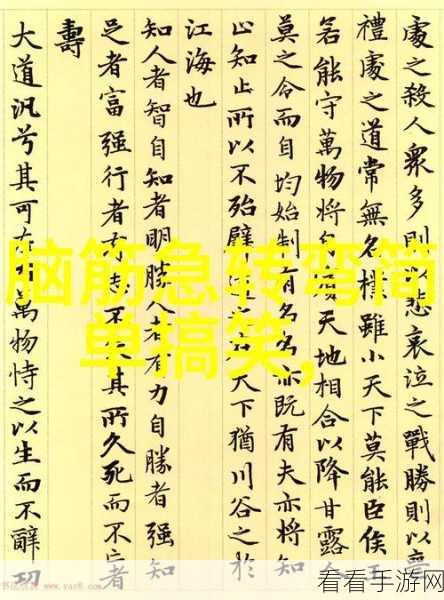 處之殺人衆多則以悲哀泣之戰勝則以喪
禮處之道常無名樸雖小天下莫能臣侯王
若能守萬物將自賓天地相合以降甘露
莫之令而自均始制有名名亦既有夫亦將知
止知止所以不殆譬道之在天下猶川谷之於
江海也
知人者智自知者明勝人者有力自勝者強知
足者富強行者有志不失其所久死而不亡者
壽
大道汎兮其可左右萬物恃之以生而不辭功
脑筋急转弯简
单搞笑,
书法欣赏 www.yac8.com
看看手游网